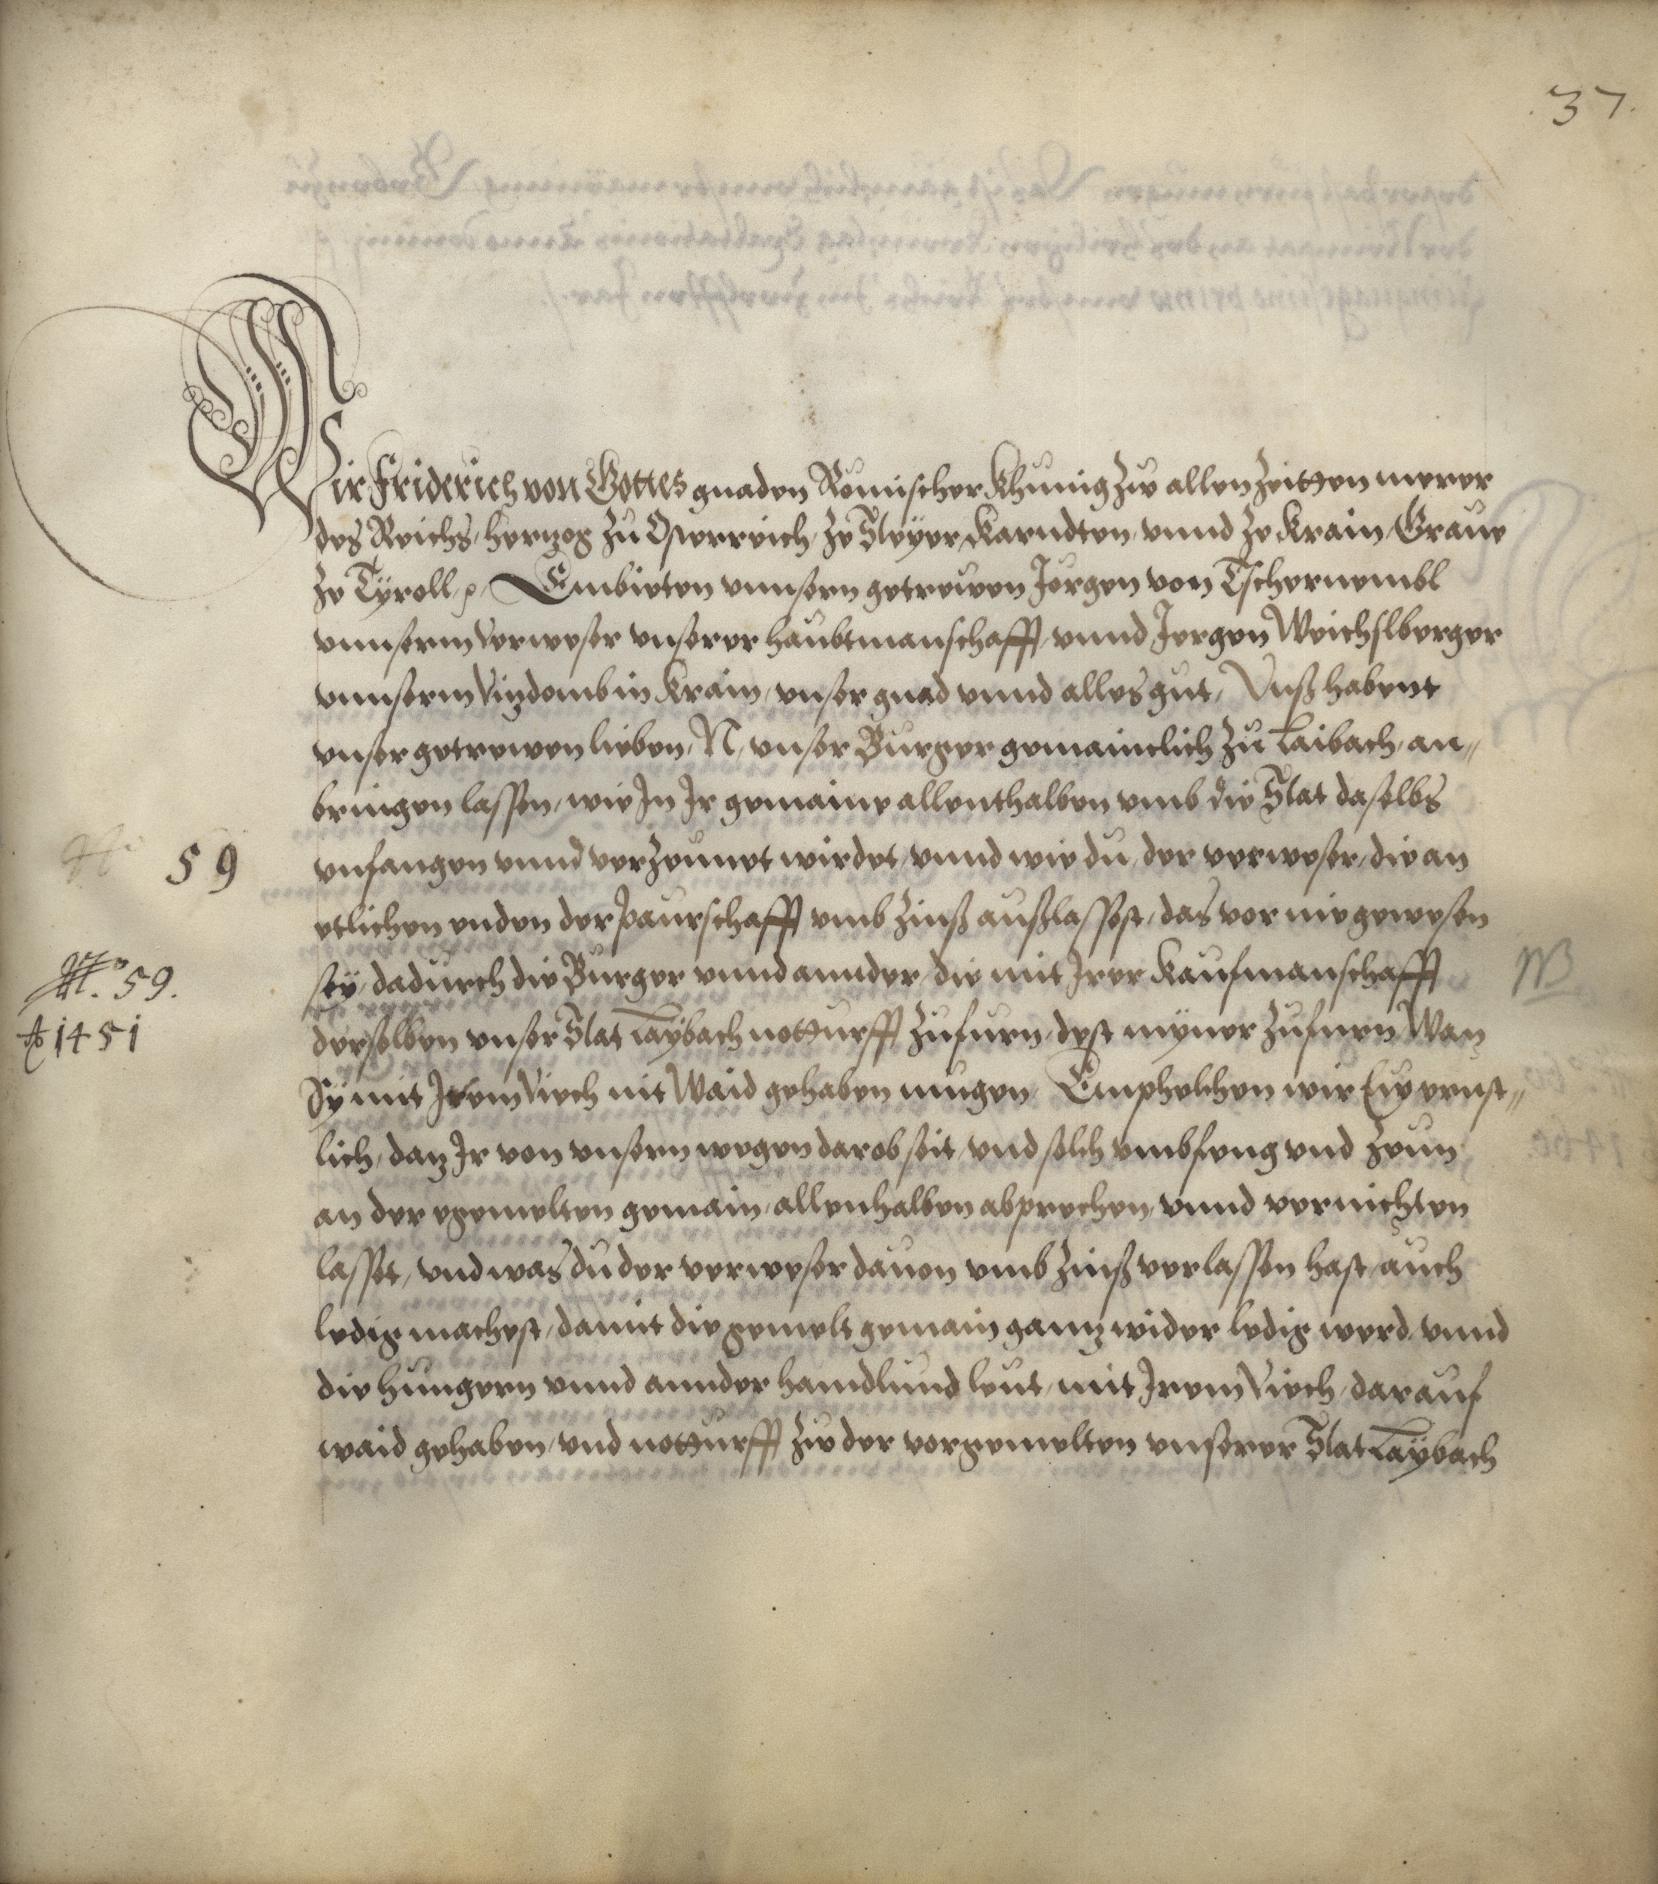 .37.
Wir Friderich von Gottes gnaden Romischer Khunig zw allen zeitten merer
des Reichs, hertzog zu Osterreich, ze Steyer, Karndten, vnnd ze Krain, Graue
ze Tÿroll, Embieten vnnsern getrewen Jorgen von Tschernembl
vnnserm verweser vnserer haubtmanschafft, vnnd Jergen Weichslberger
vnnserm Vizdomb in Krain, vnser gnad vnnd alles gut, Vnß habent
vnser getrewen lieben, N, vnser Burger gemainclich zu Laibach, an„
bringen lassen, wie In Ir gemaine allenthalben vmb die Stat daselbs
59
vnfangen vnnd verzeunet wirdet, vnnd wie du, der verweser, die an
etlichen enden der paurschafft vmb zinß außlassest, das vor nie gewesen
seÿ, dadurch die Burger vnnd annder, die mit Irer Kaufmanschafft
NB
No. 59.
derselben vnser Stat Laÿbach notturfft zufurn, dest mÿner zufurn Wan
Ao 1451
Sy mit Irem Viech nit Waid gehaben mugen, Emphelhen wir Ew ernst„
lich, daz Ir von vnsern wegen darob seit, vnd solch vmbfeng vnd zeun
an der egemelten gemain, allenhalben abprechen, vnnd vernichten
lasset, vnd was du der verweser dauon vmb zinß verlassen hast, auch
ledig machest, damit die gemelt gemain gannz wider ledig werd, vnnd
die hungern vnnd annder handlund leut, mit Irem Viech, darauf
waid gehaben, vnd notturfft zw der vorgemelten vnserer Stat Laÿbach